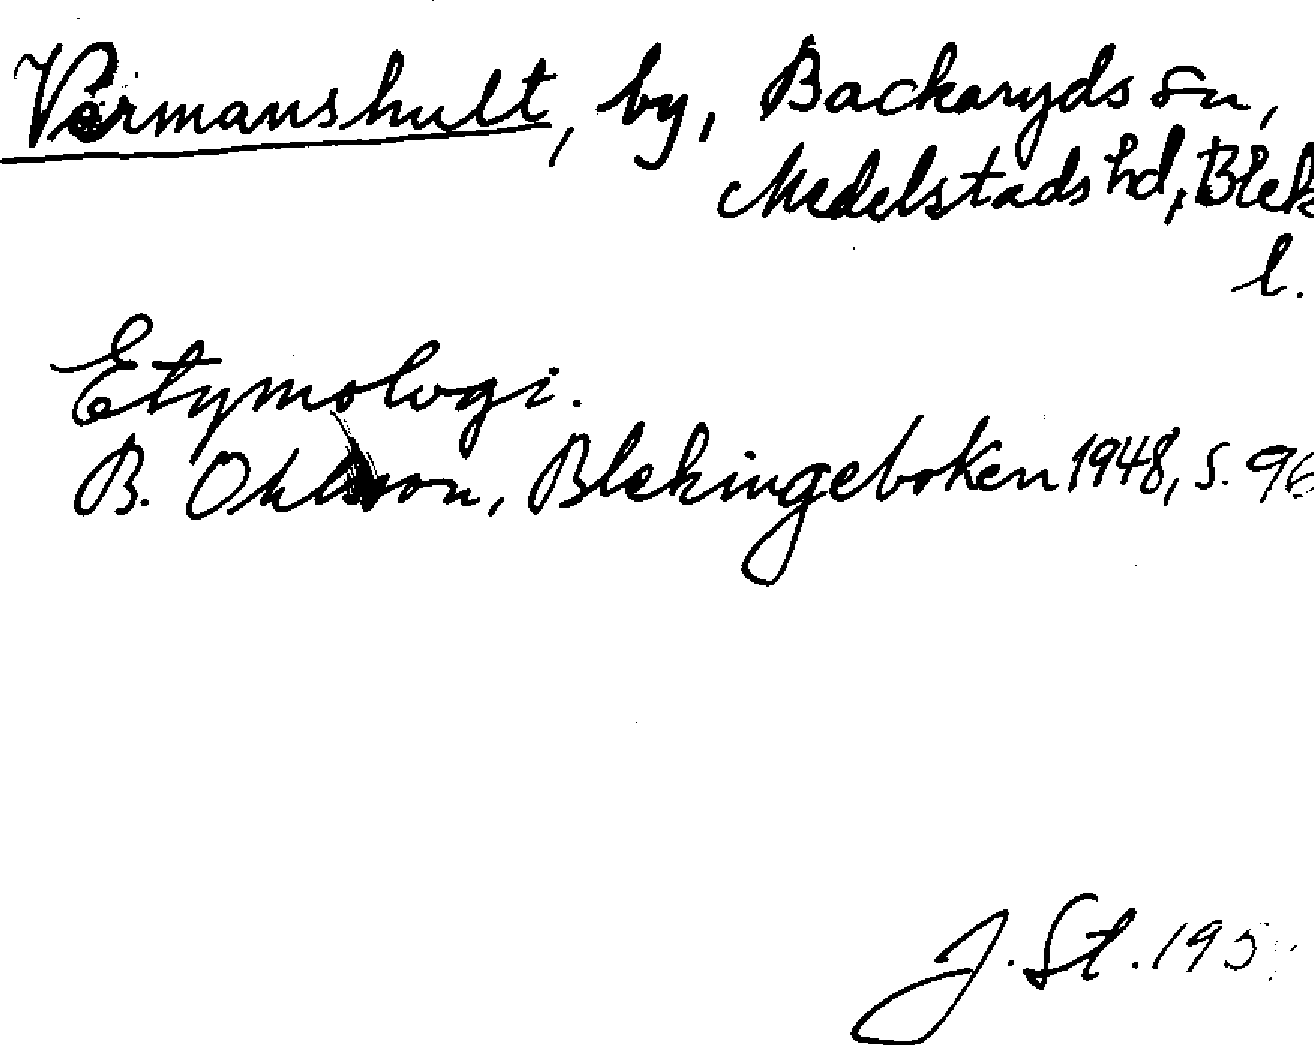 Värmanshult, by, Backaryds sn,
Medelstads hd, Blek
l.
Etymologi.
B. Ohlsson, Blekingeboken 1948, s. 96
J. St. 195